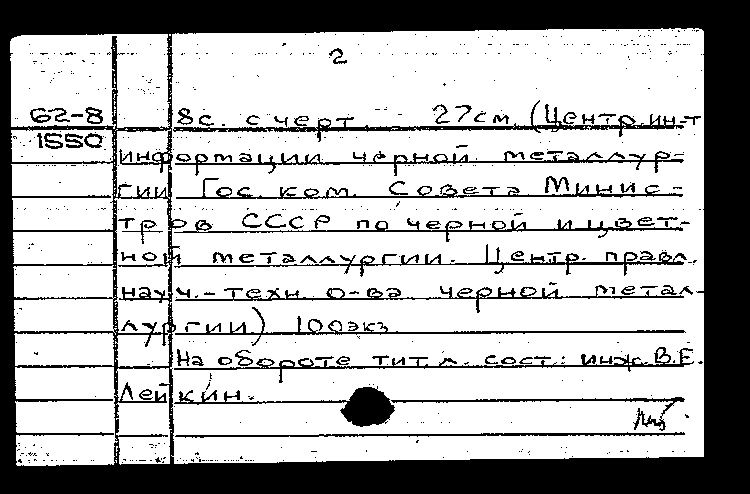 2
62-8 8с. с черт 27см (Центр. ин-т
1550
информации черной металлур-
гии Гос. ком. Совета Минис-
тров СССР по черной и цвет-
ной металлургии. Центр. правл.
науч.-техн. о-ва черной метал-
лургии) 100экз.
На обороте тит. л. сост.: инж. В.Е.
Лейкин.